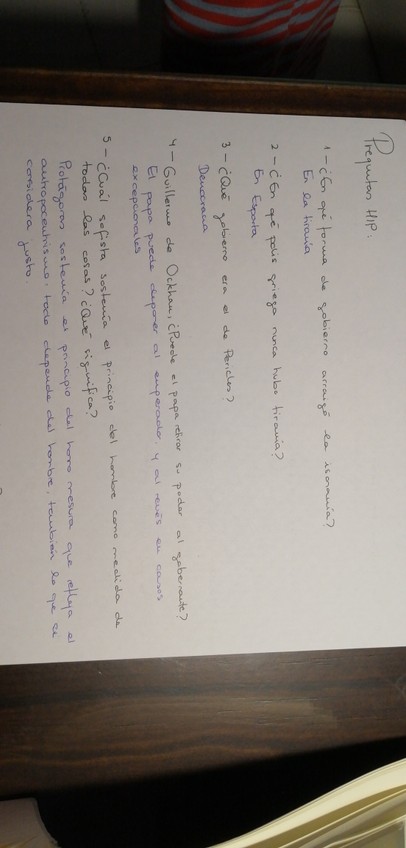 Preguntas HIP:
1- ¿En qué forma de gobierno arraigó la isonomía?
En la tiranía
2- ¿En qué polis griega nunca hubo tiranía?
En Esparta
3- ¿Qué gobierno era el de Pericles?
Democracia
4- Guillermo de Ockham, ¿Puede el papa retirar su poder al gobernante?
El papa puede deponer al emperador, y al revés en casos
excepcionales
5- ¿Cuál sofista sostenía el principio del hombre como medida de
todas las cosas? ¿Qué significa?
Protágoras sostenía el principio del homo mesura que refleja el
antropocentrismo, todo depende del hombre, también lo que él
considera justo.